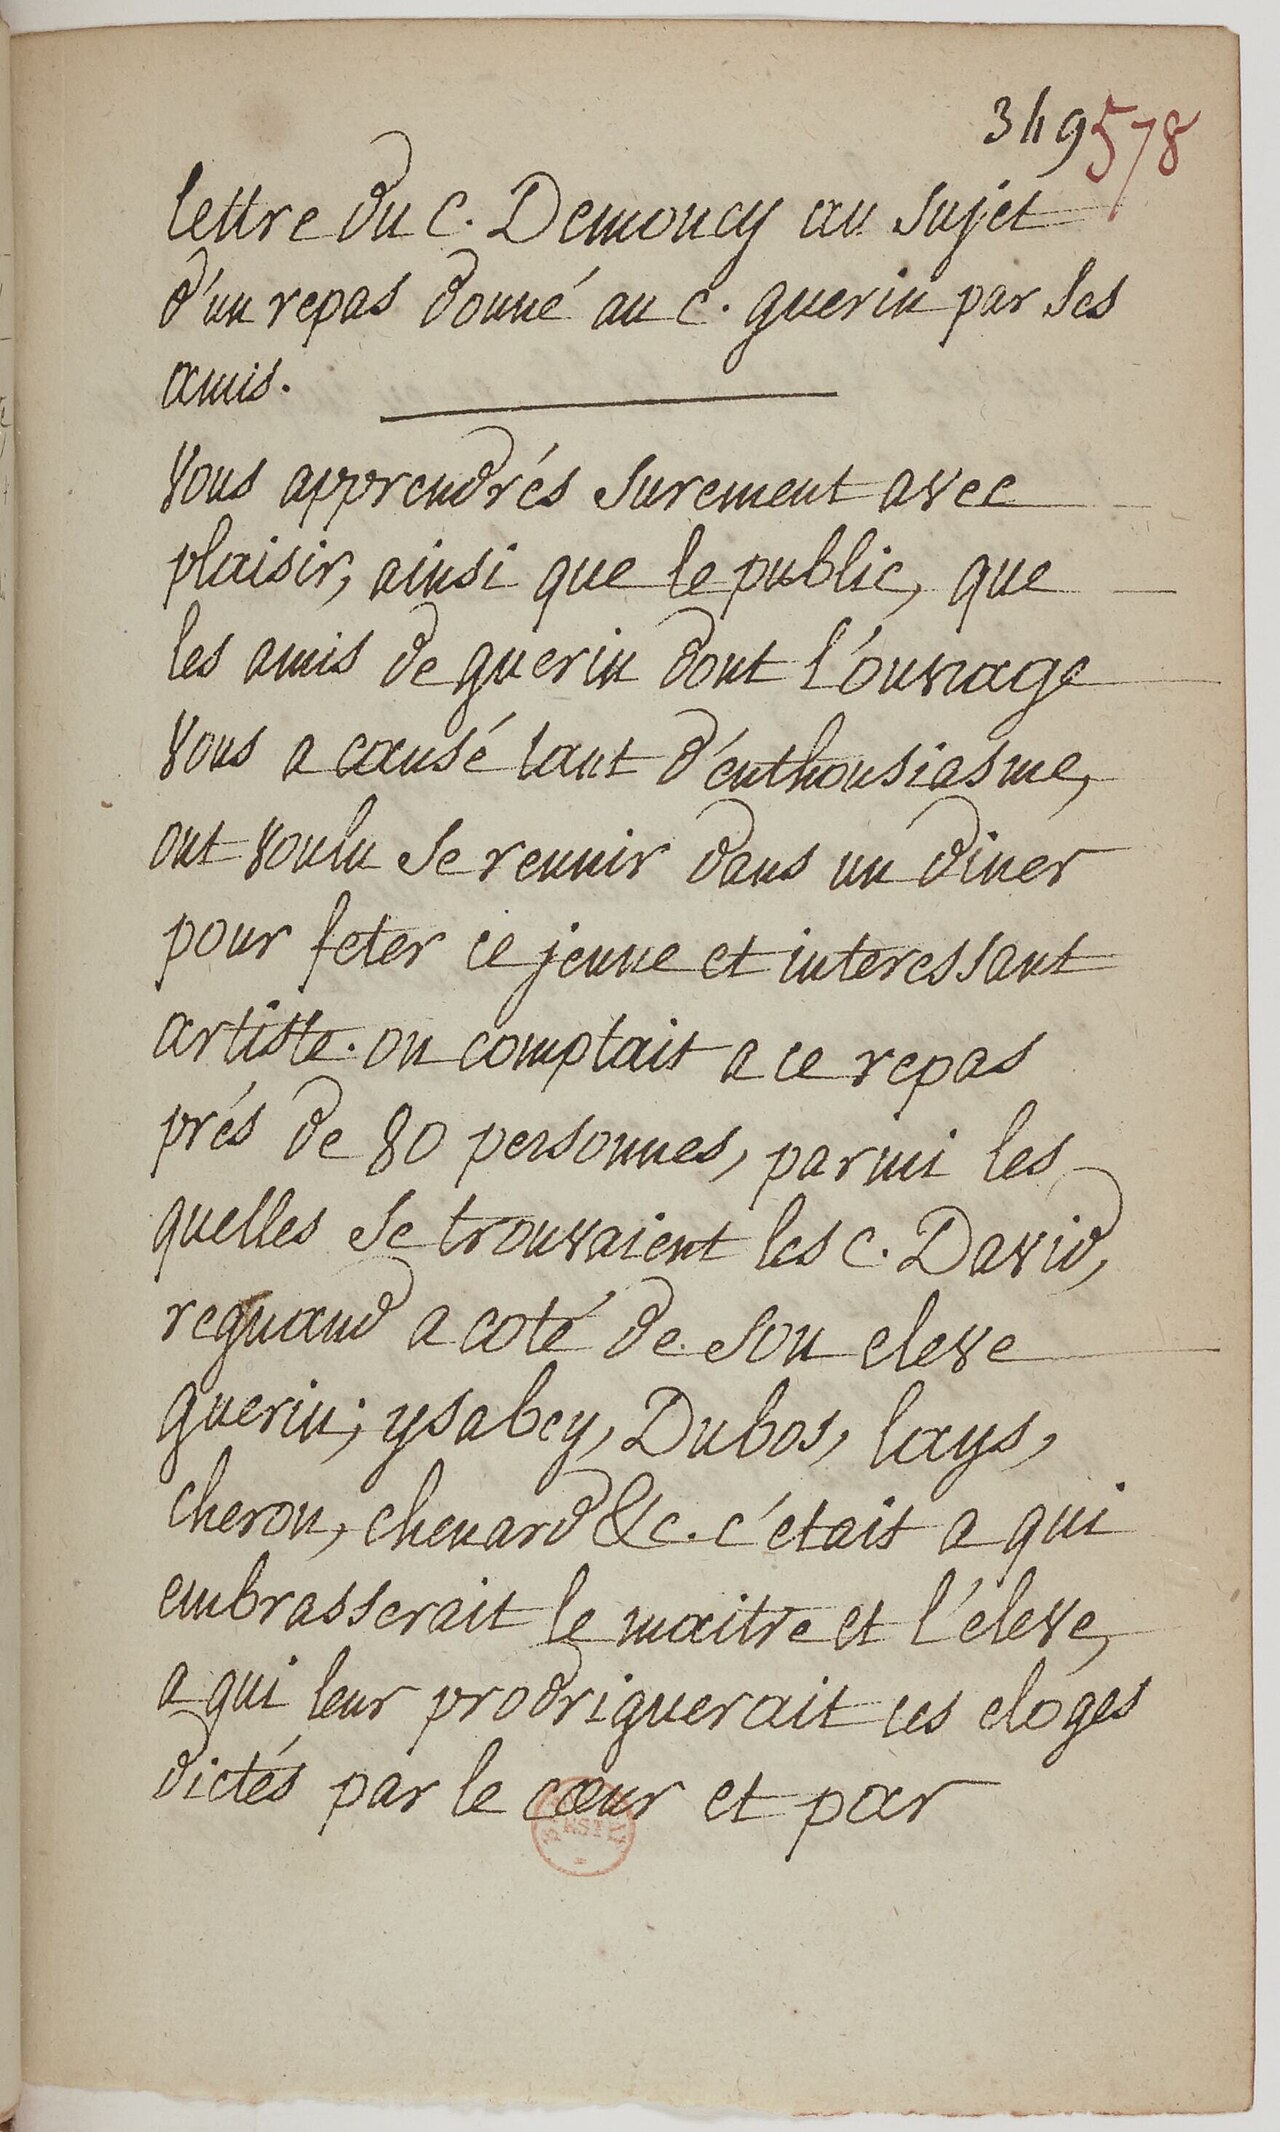 349 578
lettre du c. Demoucy au sujet
d'un repas donné au c. guerin par ses
amis.
Vous apprendrés surement avec
plaisir, ainsi que le public, que
les amis de guerin dont l'ouvrage
vous a causé tant d'enthousiasme,
ont voulu se reunir dans un diner
pour feter ce jeune et interessant
artiste. on comptait a ce repas
prés de 80 personnes, parmi les
quelles se trouvaient les c. David,
regnaud a coté de son eleve
guerin; ysabey, Dubos, lays,
cheron, chenard &c. c'etait a qui
embrasserait le maitre et l'éleve,
a qui leur prodriguerait ces eloges
dictés par le cœur et par